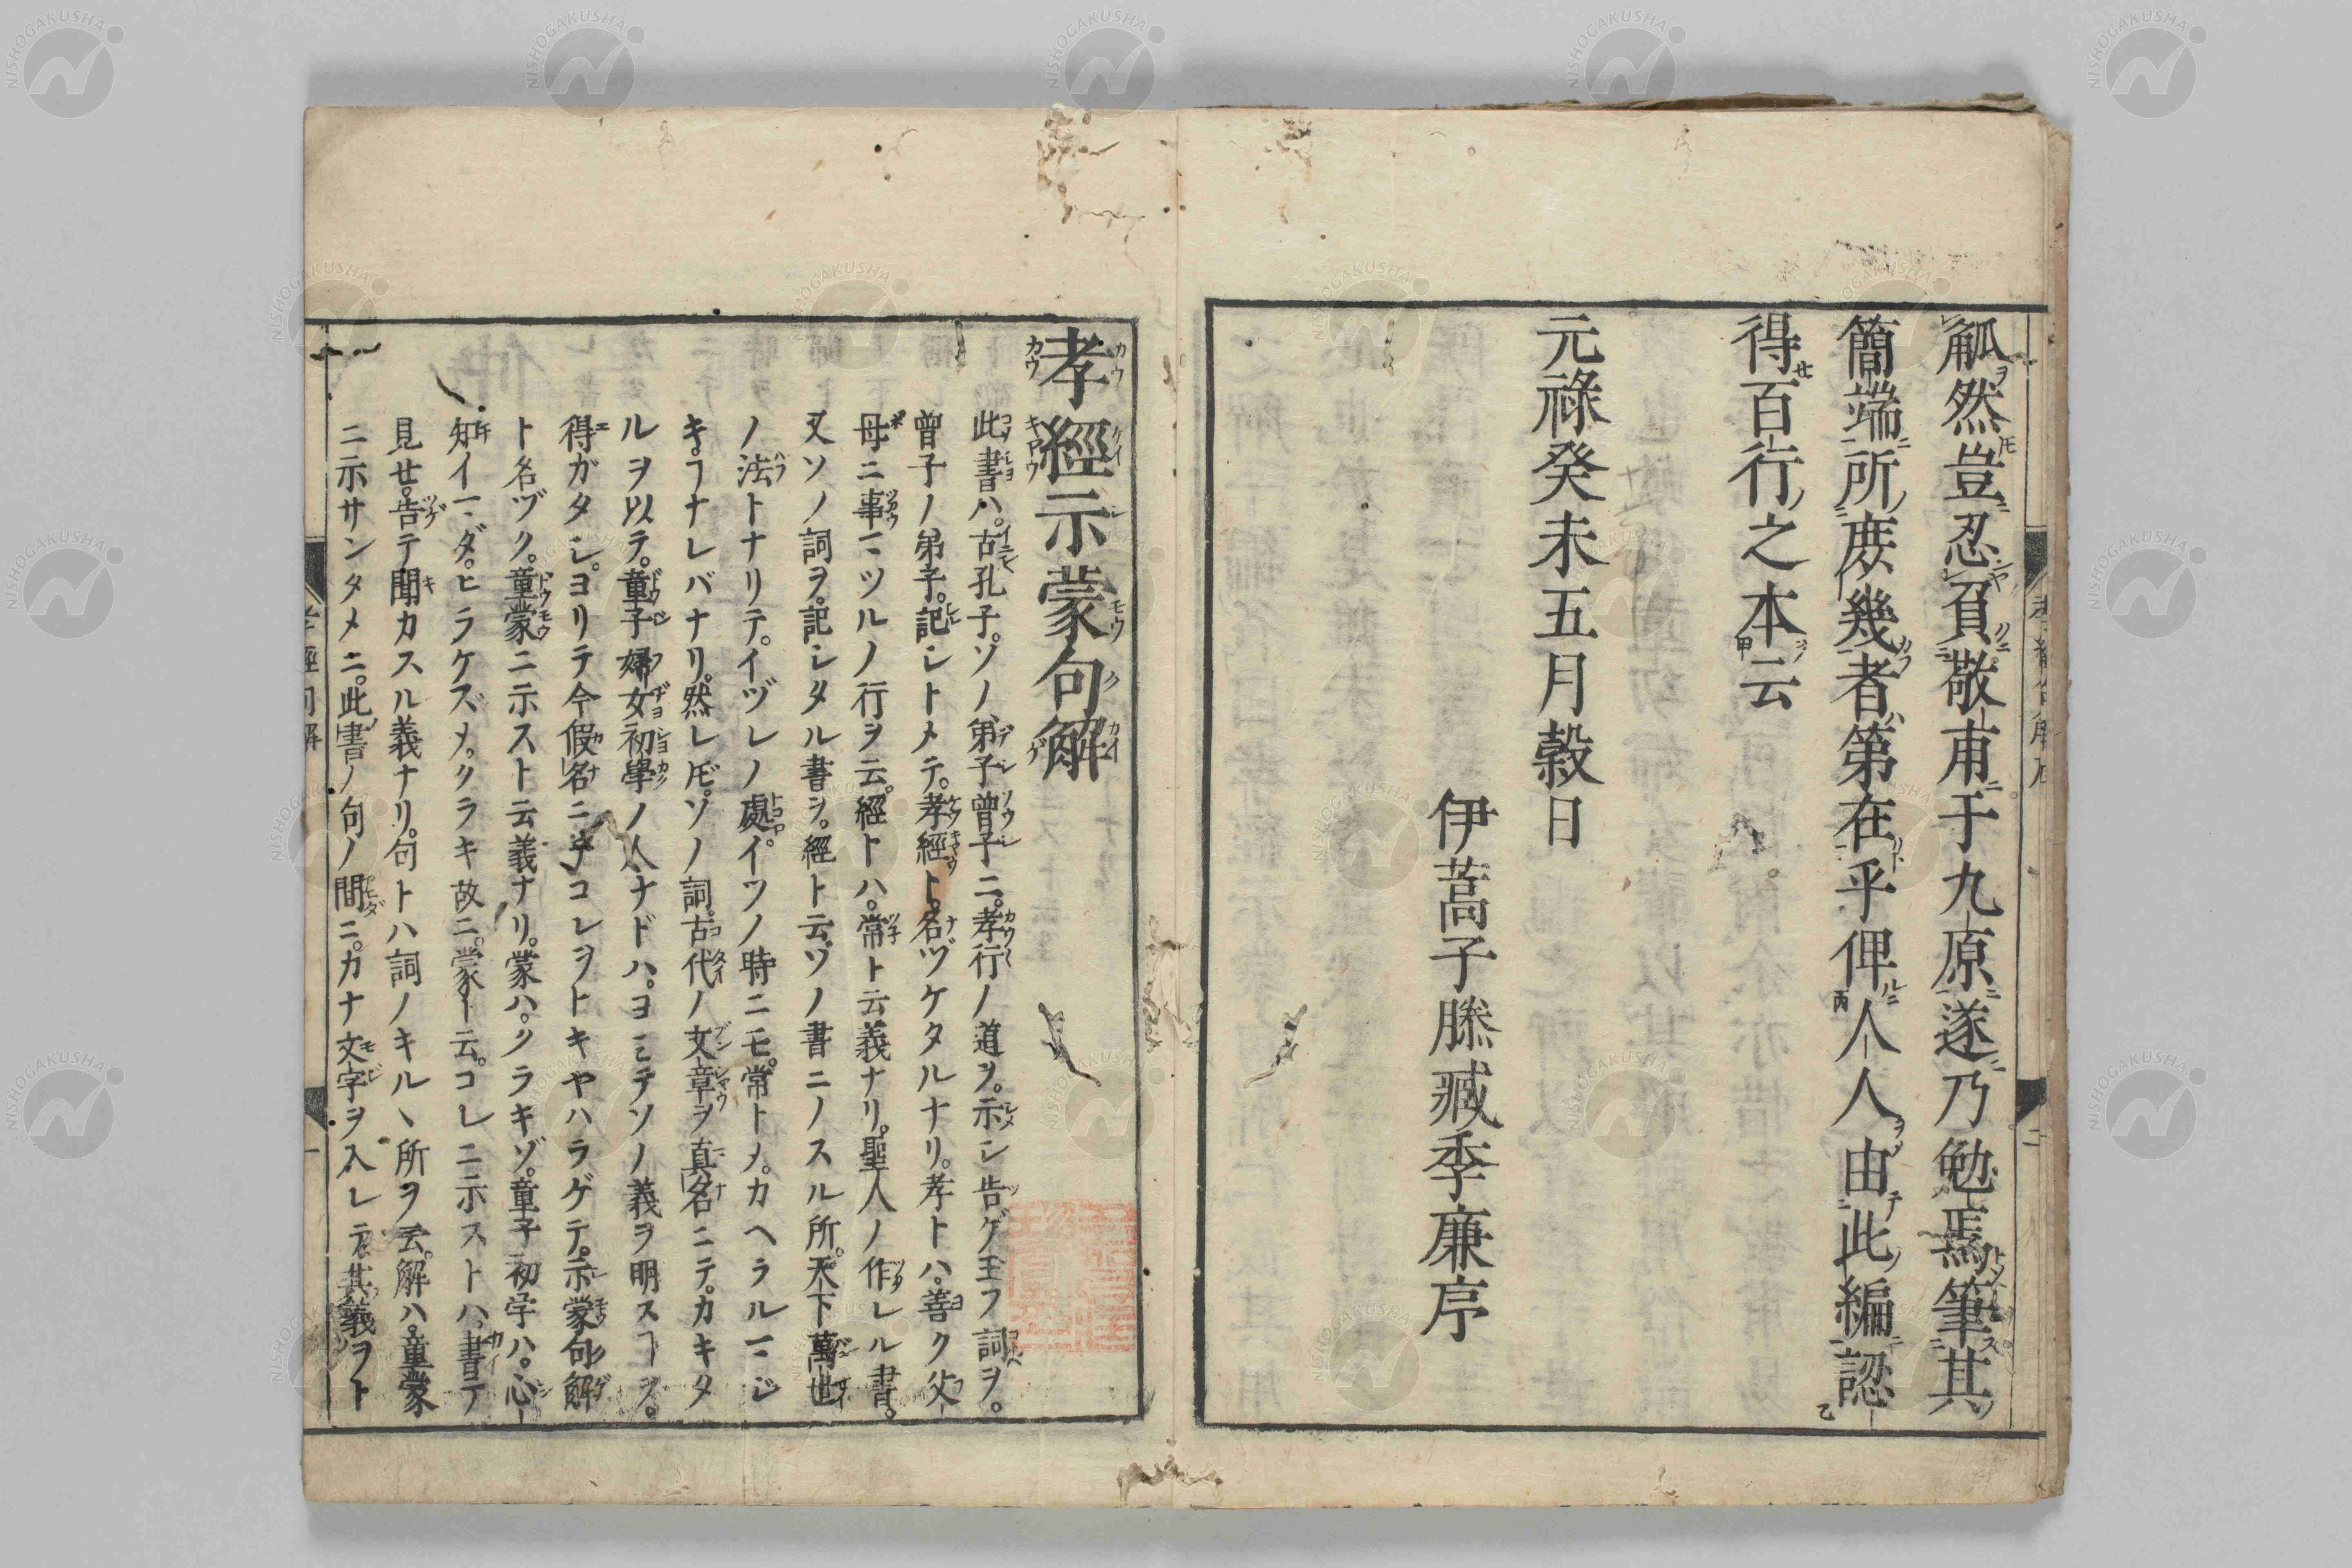 觚然豈忍負敬甫于九原遂乃勉焉筆其
簡端所庶幾者第在乎俾人人由此編認
得百行之本云
元祿癸未五月穀日
伊蒿子滕臧季廉序
孝經示蒙句解
此書ハ。古孔子。ソノ弟子曾子ニ。孝行ノ道ヲ。示シ告ゲ玉フ詞ヲ。
曾子ノ弟子。記シトメテ。孝經ト。名ヅケタルナリ。孝トハ。善ク父
母ニ事マツルノ行ヲ云。經トハ。常ト云義ナリ。聖人ノ作レル書。
又ソノ詞ヲ。記シタル書ヲ。經ト云。ソノ書ニノスル所。天下萬世
ノ法トナリテ。イヅレノ處。イツノ時ニモ。常トメ。カヘラルマジ
キヿナレバナリ。然レ𪜈。ソノ詞。古代ノ文章ヲ真名ニテ。カキタ
ルヲ以テ。童子婦女初學ノ人ナドハ。ヨミテソノ義ヲ明スヿヲ。
得ガタシ。ヨリテ今假名ニテコレヲトキヤハラゲテ。示蒙句解
ト名ヅク。童蒙ニ示スト云義ナリ。蒙ハ。クラキゾ。童子初学ハ。心
知イマダ。ヒラケズメ。クラキ故ニ。蒙ト云。コレニ示ストハ。書テ
見せ。告テ聞カスル義ナリ。句トハ詞ノキルヽ所ヲ云。解ハ。童蒙
ニ示サンタメニ。此書ノ句ノ間ニ。カナ文字ヲ入レテ。其義ヲト
NISHOGAKUSHA